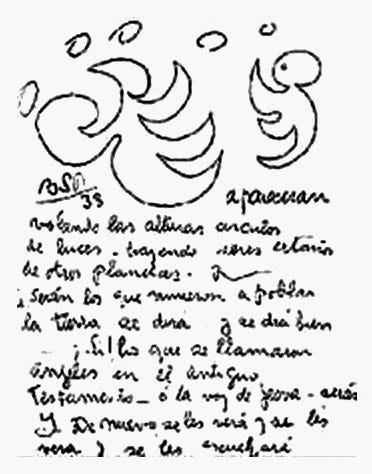 BSP
38
apareceran
volando las alturas circulos
de luces - trayendo seres extraños
de otros planetas.
¡Serán los que vinieron a poblar
la tierra se dirá y se dirá bien
¡Si! los que se llamaron
ángeles en el antiguo
Testamento - o la voz de Jeova - serán
De nuevo se les verá y se les
vera y se les escuchará